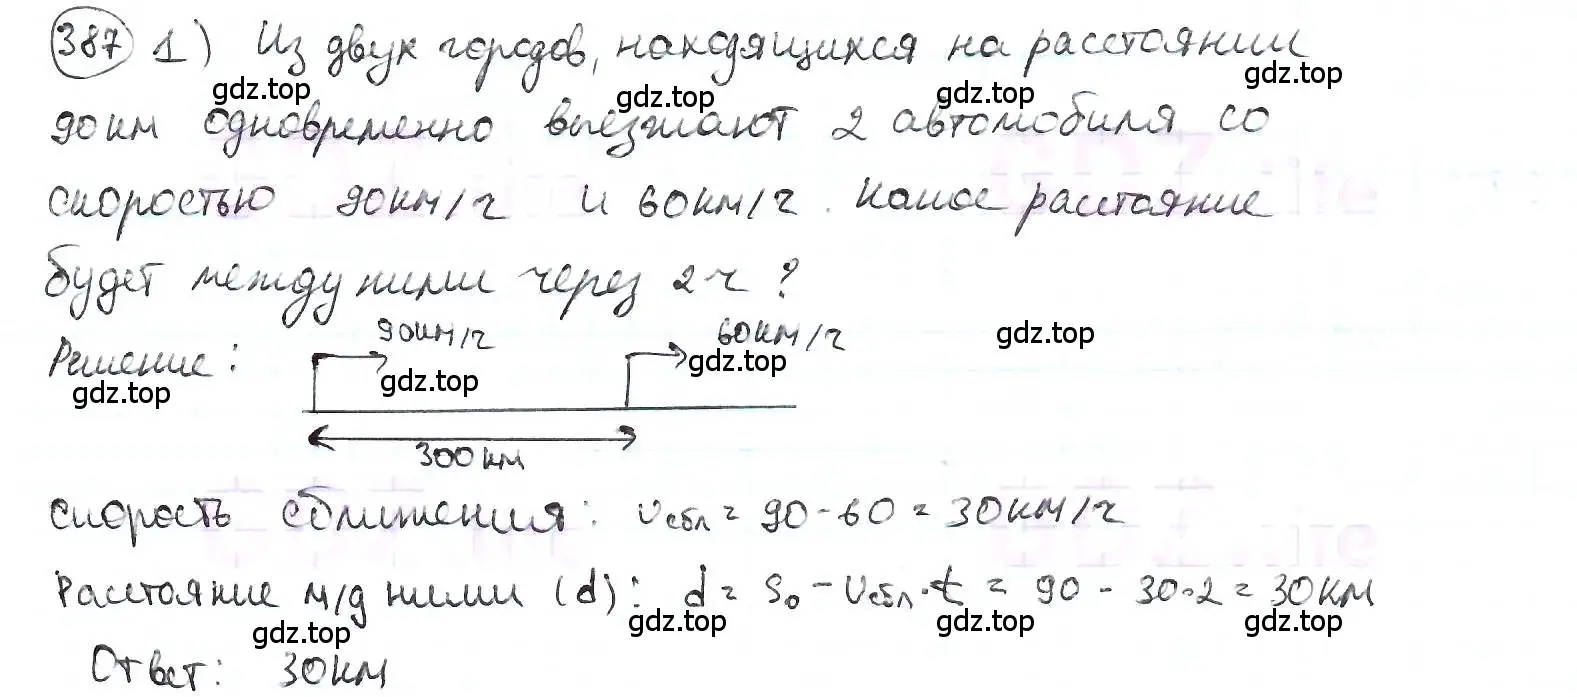 387 1) Из двух городов, находящихся на расстоянии
gdz.top gdz.top gdz.top gdz.top
90км одновременно выезжают 2 автомобиля со
скоростью 90км/ч и 60км/ч. Какое расстояние
будет между ними через 2 ч?
90км/ч 60км/ч gdz.top
Решение: gdz.top gdz.top
gdz.top
300 км
Скорость сближения: vсбл = 90-60 = 30км/ч
Расстояние м/д ними (d): d = S₀ - Vсбл·t = 90 - 30·2 = 30км
gdz.top gdz.top gdz.top gdz.top
Ответ: 30км
gdz.top